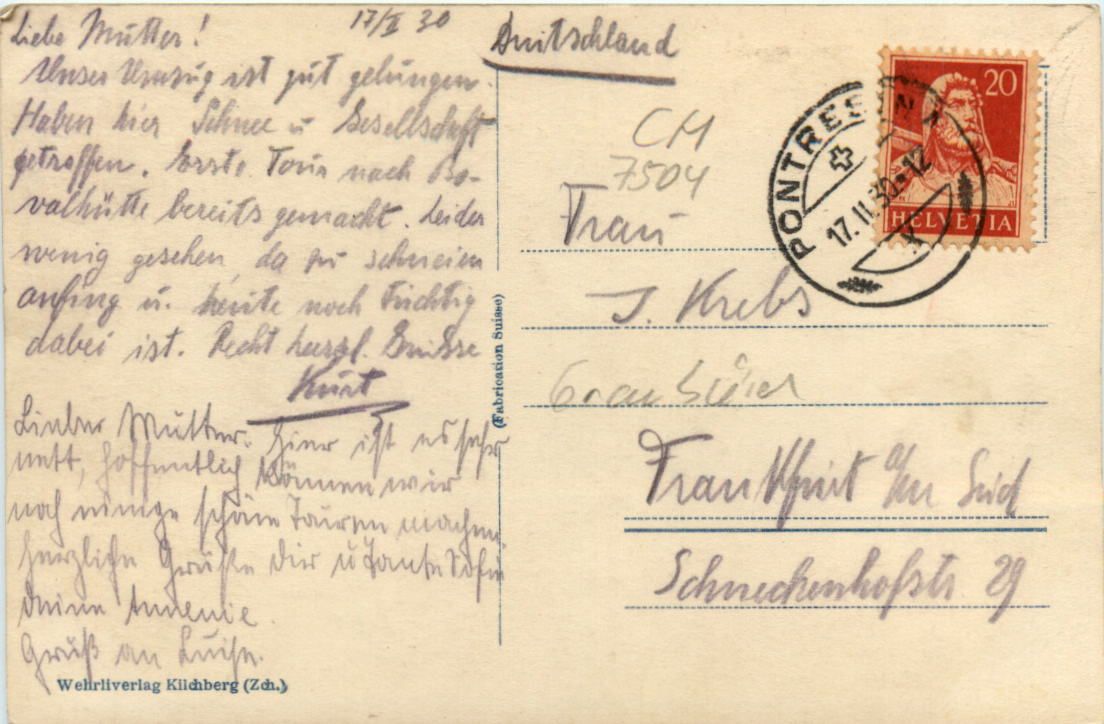 17/II 30
Liebe Mutter!
Unser Umzug ist gut gelungen.
Haben hier Schnee u Gesellschaft
getroffen. Erste Tour nach Bo-
valhütte bereits gemacht. Leider
wenig gesehen, da zu schneien
anfing u. heute noch tüchtig
dabei ist. Recht herzl. Grüsse
Kurt
Liebe Mutter. Hier ist es sehr
nett, hoffentlich können wir
noch einige schöne Touren machen.
Herzliche Grüße Dir u Tante Sofie
Deine Annemie.
Gruß an Luise.
Wehrliverlag Kilchberg (Zch.)
(Fabrication Suisse)
Deutschland
CH
7504
PONTRESINA
17.II.30-12
20
HELVETIA
Frau
J. Krebs
Frankfurt a/m Süd
Schneckenhofstr. 29